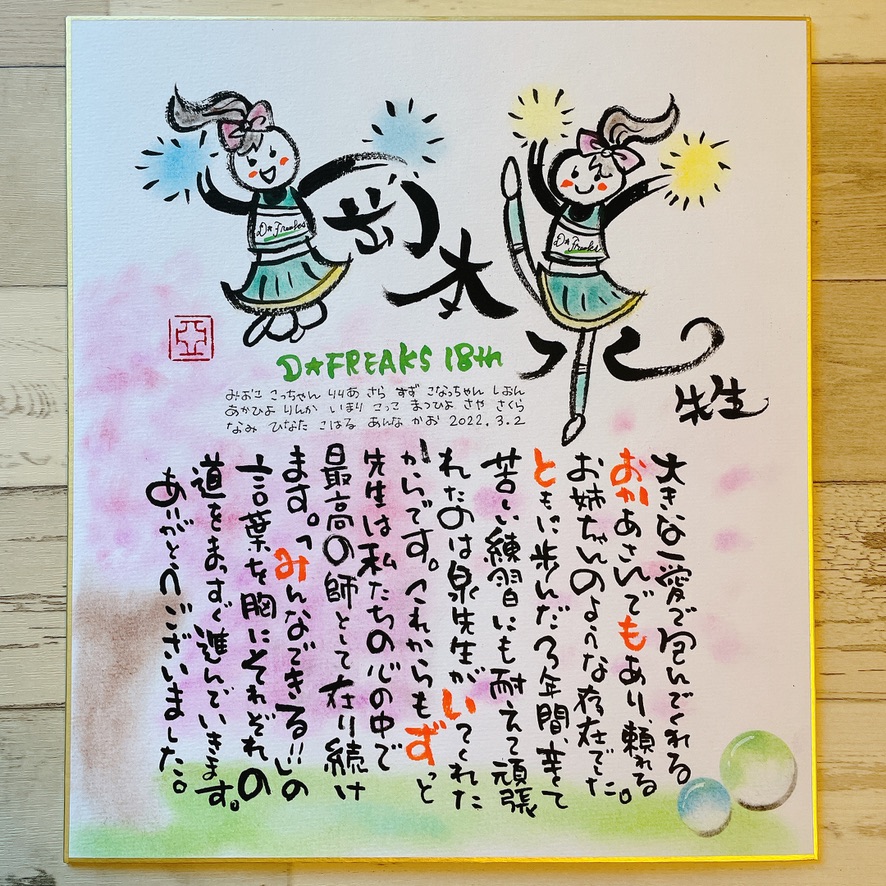 D★Freaks
D★Freaks
岡本泉
先生
D★FREAKS 18th
みおこ こっちゃん りりあ さら すず こなっちゃん しおん
あかひよ りんか いまり こっこ まつひよ さや さくら
なみ ひなた こはる あんな かお 2022.3.2
大きな愛で包んでくれる
おかあさんでもあり、頼れる
お姉ちゃんのような存在でした。
ともに歩んだ3年間、辛くて
苦しい練習にも耐えて頑張
れたのは泉先生がいてくれた
からです。これからもずっと
先生は私たちの心の中で
最高の師として在り続け
ます。「みんなできる!!」の
言葉を胸にそれぞれの
道をまっすぐ進んでいきます。
ありがとうございました。